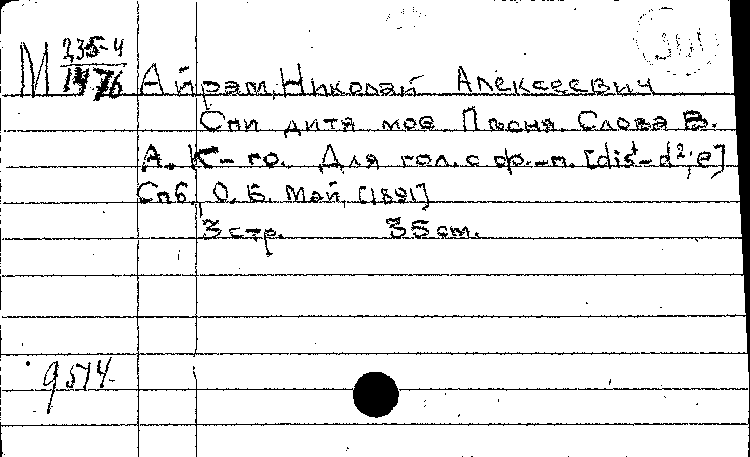 М 235-4
1476
Айрам, Николай Алексеевич
Спи дитя мое. Пѣсня. Слова В.
А. К-го. Для гол. с ф.-п. [dis¹-d²; e]
Спб., О. Б. Май, [1891]
3 стр. 35 см.
9514